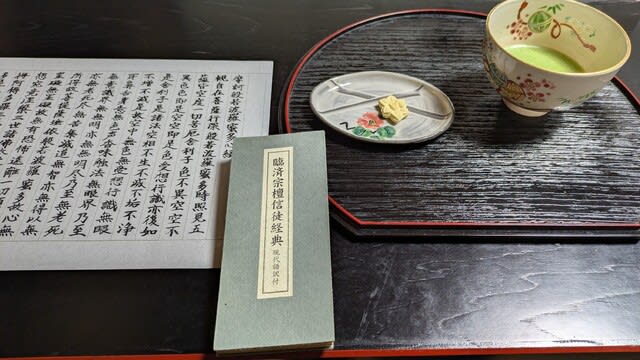 摩訶般若波羅蜜多心経
観自在菩薩行深般若波羅蜜多時照見五
蘊皆空度一切苦厄舎利子色不異空空不
異色色即是空空即是色受想行識亦復如
是舎利子是諸法空相不生不滅不垢不浄
不増不減是故空中無色無受想行識無眼
耳鼻舌身意無色声香味触法無眼界乃至
無意識界無無明亦無無明尽乃至無老死
亦無老死尽無苦集滅道無智亦無得以無
所得故菩提薩埵依般若波羅蜜多故心無
臨済宗檀信徒経典
現代語訳付